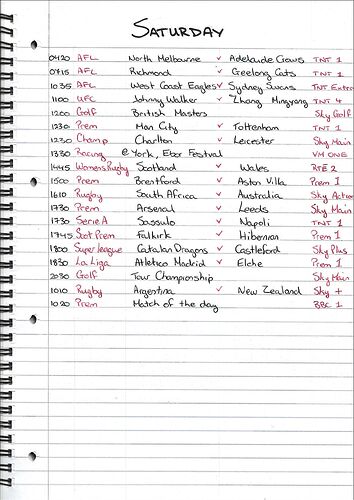 SATURDAY
0420 AFL North Melbourne v Adelaide Crows TNT 1
0715 AFL Richmond v Geelong Cats TNT 1
1035 AFL West Coast Eagles v Sydney Swans TNT Extra
1100 UFC Johnny Walker v Zhang Mingyang TNT 4
1200 Golf British Masters Sky Golf
1230 Prem Man City v Tottenham TNT 1
1230 Champ Charlton v Leicester Sky Main
1330 Racing @ York, Ebor Festival VM ONE
1445 Womens Rugby Scotland v Wales RTE 2
1500 Prem Brentford v Aston Villa Prem 1
1610 Rugby South Africa v Australia Sky Action
1730 Prem Arsenal v Leeds Sky Main
1730 Serie A Sassulo v Napoli TNT 1
1745 Scot Prem Falkirk v Hibernian Prem 1
1800 Super league Catalan Dragons v Castleford Sky Plus
1830 La Liga Atletico Madrid v Elche Prem 1
2030 Golf Tour Championship Sky Main
1010 Rugby Argentina v New Zealand Sky +
1020 Prem Match of the day BBC 1